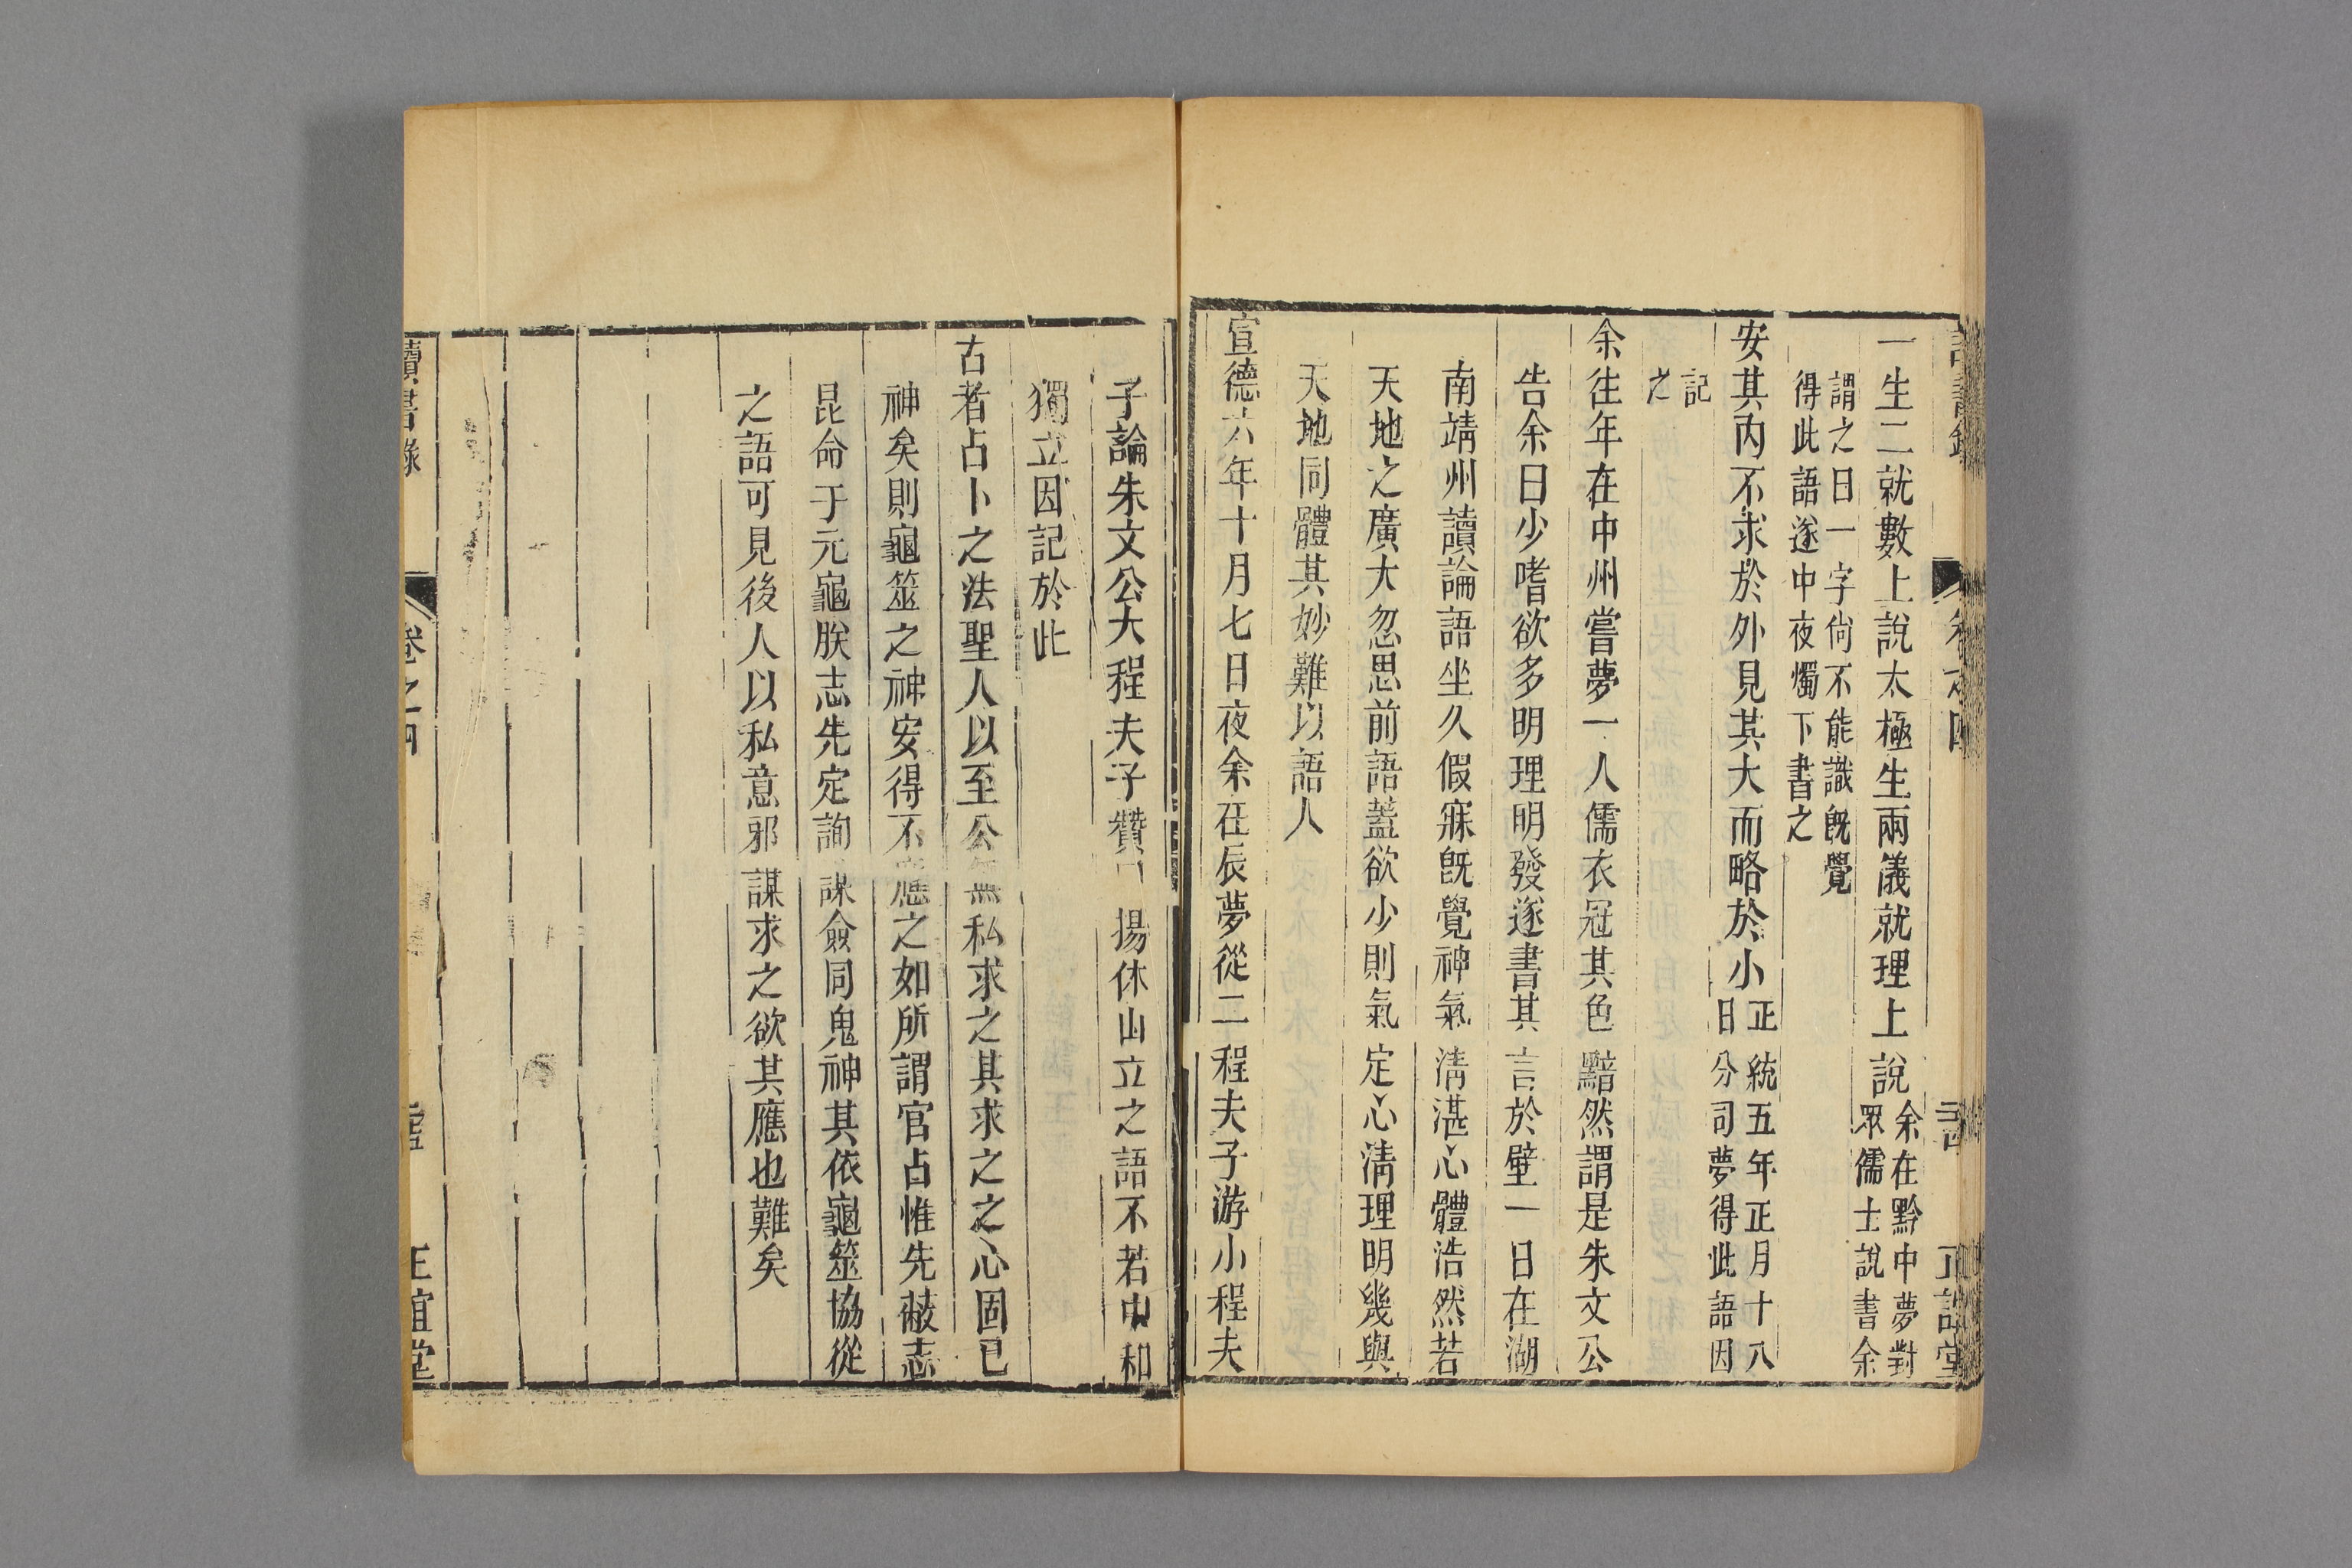 一生二就數上說太極生兩儀就理上說余在黔中夢對
眾儒士說書余
謂之曰一字尙不能識旣覺
得此語遂中夜燭下書之
安其內不求於外見其大而略於小正統五年正月十八
日分司夢得此語因
記
之
余往年在中州嘗夢一人儒衣冠其色黯然謂是朱文公
告余曰少嗜欲多明理明發遂書其言於壁一日在湖
南靖州讀論語坐久假寐旣覺神氣淸湛心體浩然若
天地之廣大忽思前語蓋欲少則氣定心淸理明幾與
天地同體其妙難以語人
宣德六年十月七日夜余在辰夢從二程夫子游小程夫
子論朱文公大程夫子贊
揚休山立之語不若中和
獨立因記於此
古者占卜之法聖人以至公無私求之其求之之心固已
神矣則龜筮之神安得不應之如所謂官占惟先蔽志
昆命于元龜朕志先定詢謀僉同鬼神其依龜筮協從
之語可見後人以私意邪謀求之欲其應也難矣
讀書錄
卷之四
正誼堂